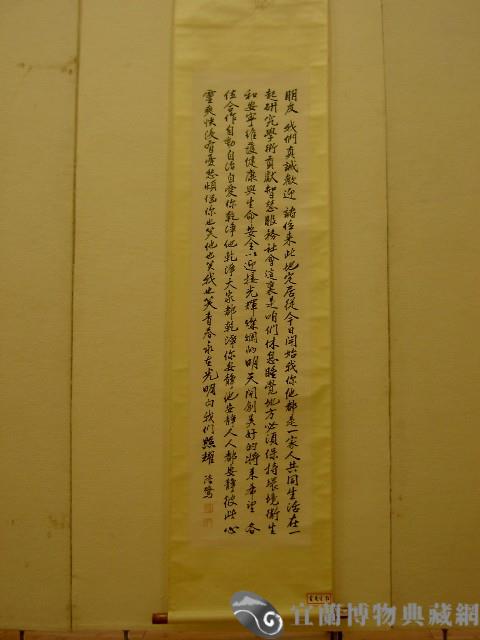 朋友 我們真誠歡迎 諸位來此地定居從今日開始我你他都是一家人共同生活在一
起研究學術貢獻智慧服務社會這裏是咱們休息睡覺地方必須保持環境衛生
和安寧維護健康與生命安全以迎接光輝燦爛的明天開創美好的將來希望 各
位合作自動自治自愛你乾淨他乾淨大家都乾淨你安靜他安靜人人都安靜彼此心
靈爽快沒有憂愁煩惱你也笑他也笑我也笑青春永在光明向我們照耀
宜蘭博物典藏網